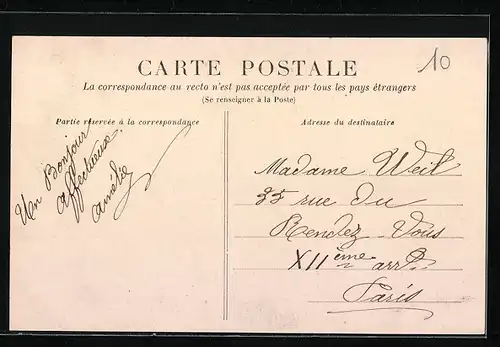 10
CARTE POSTALE
La correspondance au recto n'est pas acceptée par tous les pays étrangers
(Se renseigner à la Poste)
Partie réservée à la correspondance
Adresse du destinataire
Un Bonjour
affectueux.
Amélie
Madame Weil
35 rue du
Rendez-Vous
XIIème arrt
Paris